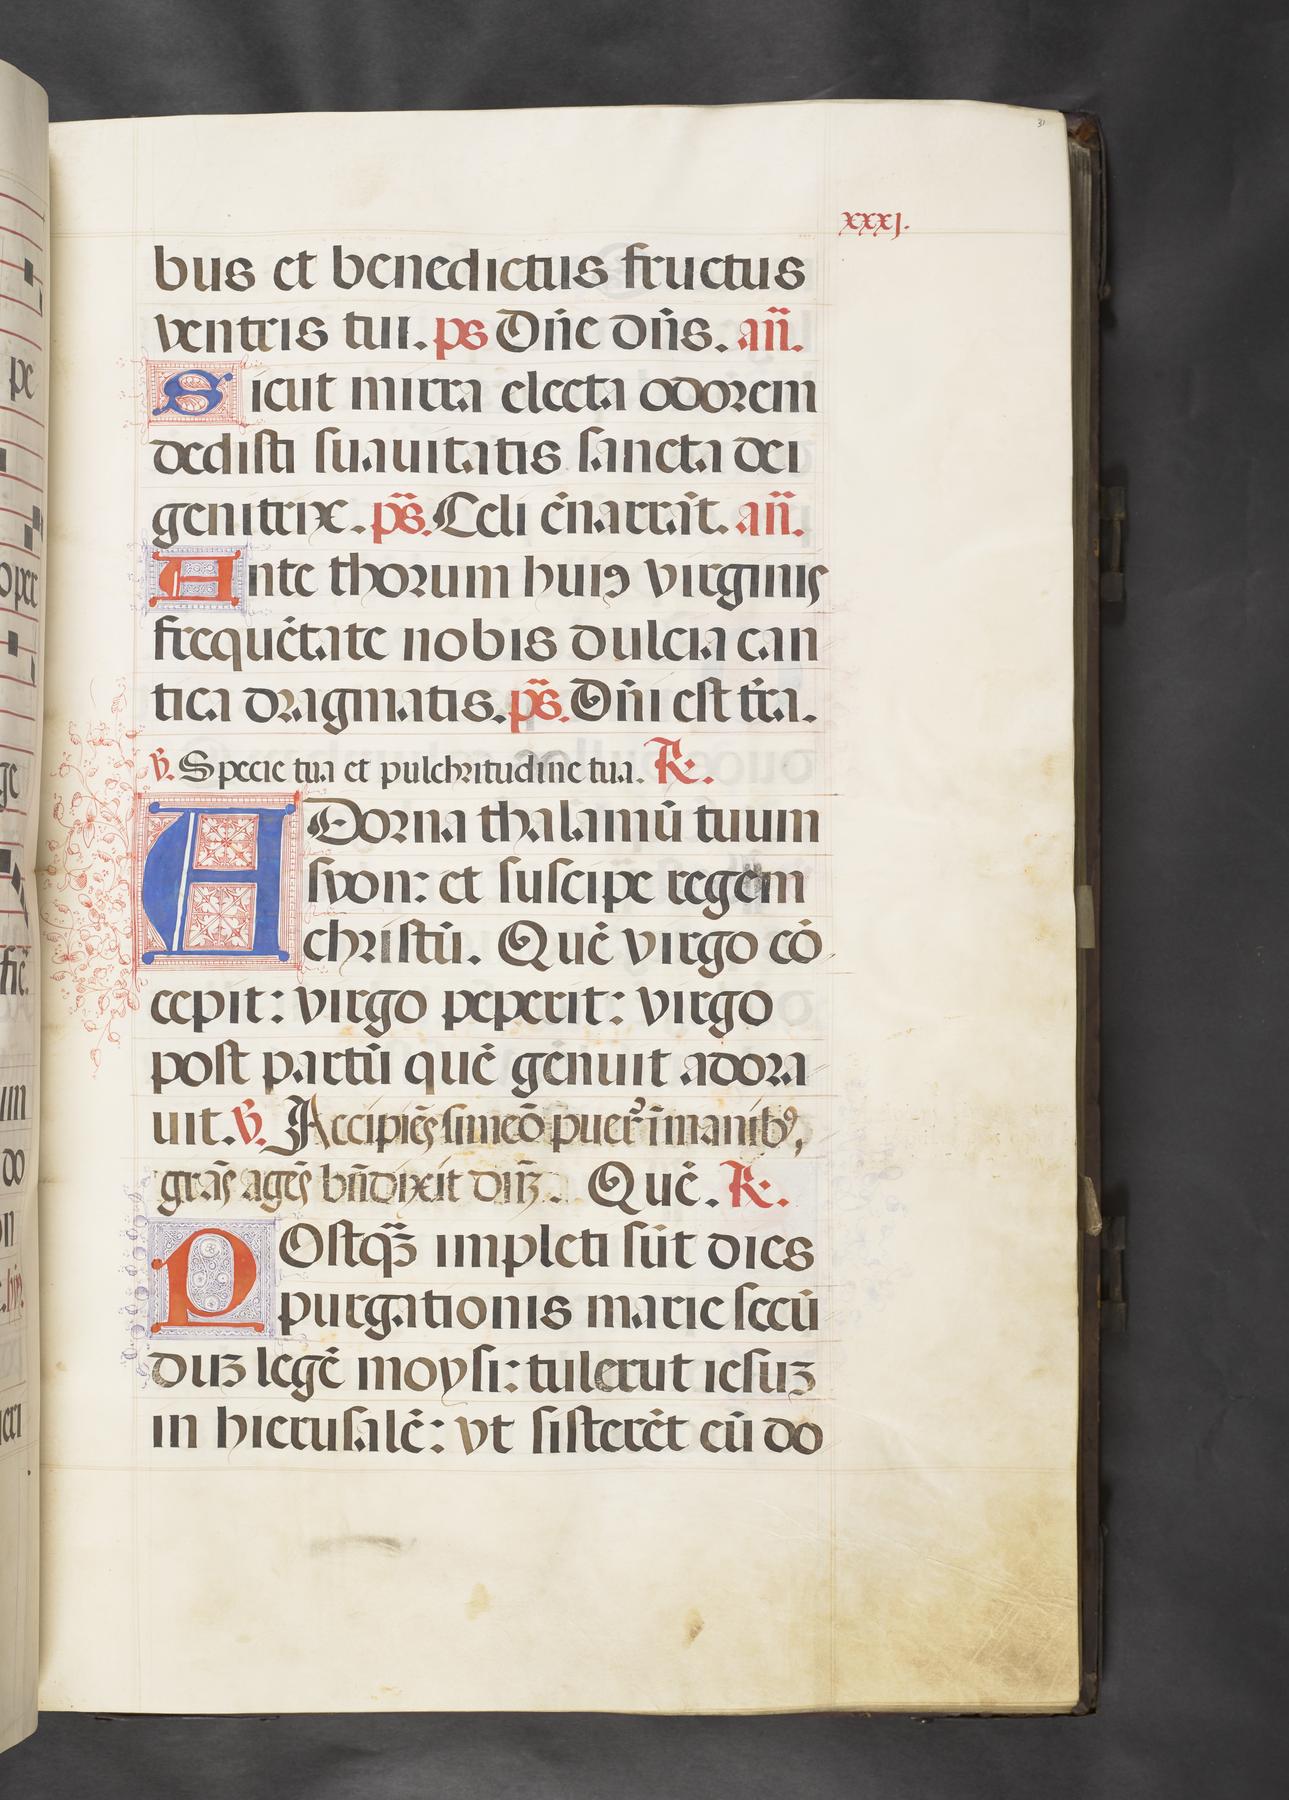 31
xxxj.
bus et benedictus fructus
ventris tui. ps Dñe dñs. añ.
Sicut mirra electa odorem
dedisti suauitatis sancta dei
genitrix. ps. Celi ēnarrāt. añ.
Ante thorum huiꝰ virginis
frequētate nobis dulcia can
tica dragmatis. ps. Dñi est tr̄a.
℣. Specie tua et pulchritudine tua. ℟.
ADorna thalamū tuum
syon: et suscipe regem
christū. Quē virgo cō
cepit: virgo peperit: virgo
post partū quē genuit adora
uit. ℣. Accipiēs simeō pueꝝ ī manibꝰ,
grās agēs bñdixit dñꝫ. Quē. ℟.
POstqꝫ impleti sūt dies
purgationis marie secū
duꝫ legē moysi: tulerut iesuꝫ
in hierusalē: vt sisterēt eū do
pe
ge
um
do